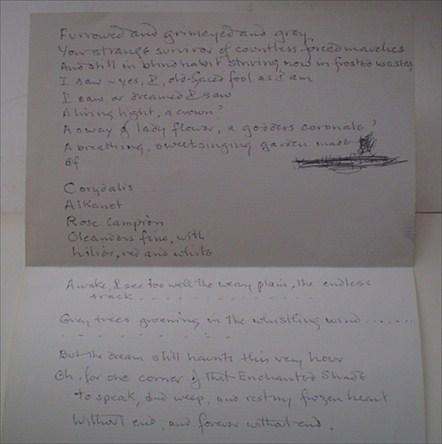 Furrowed and grimeyed and grey,
Your strange survivor of countless forced marches
And still in blind habit striving now in frosted wastes,
I saw – yes, I, old-faced fool as I am
I saw or dreamed I saw
A living light, a crown,
A sway of lady flower, a goddess coronate,
A breathing, sweetsinging garden made
of
Corydalis
Alkanet
Rose Campion
Oleanders fine, with
Lilies, red and white
Awake, I see too well the weary plain, the endless
track
Grey trees groaning in the whistling wind
But the dream still haunts this very hour
Oh, for one corner of that Enchanted Shade
to speak, and weep, and rest my frozen heart
Without end, and forever without end.